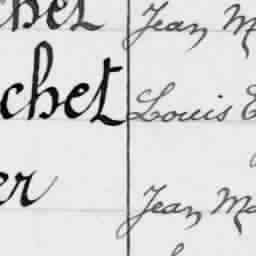 chet Jean M
chet Louis E
er Jean Ma